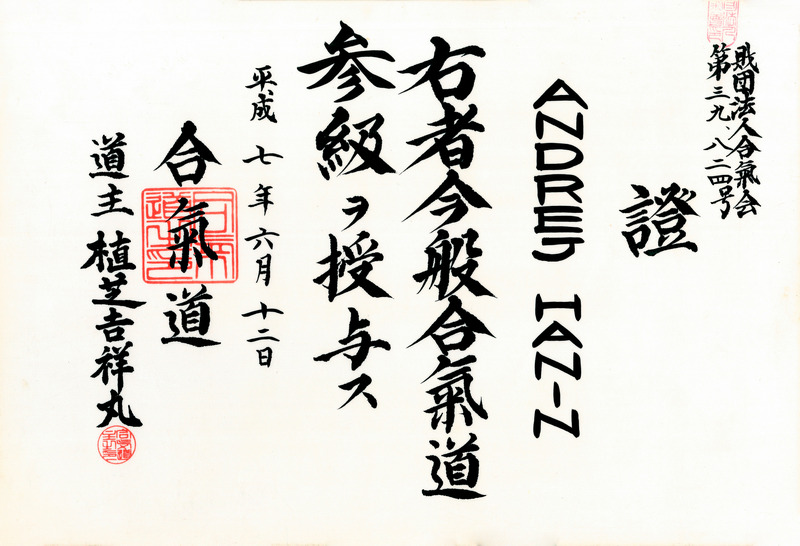 財団法人合氣会
第三九、八二四号
證
ANDREJ HANIN
右者今般合氣道
参級ヲ授与ス
平成七年六月十二日
合氣道
道主植芝吉祥丸